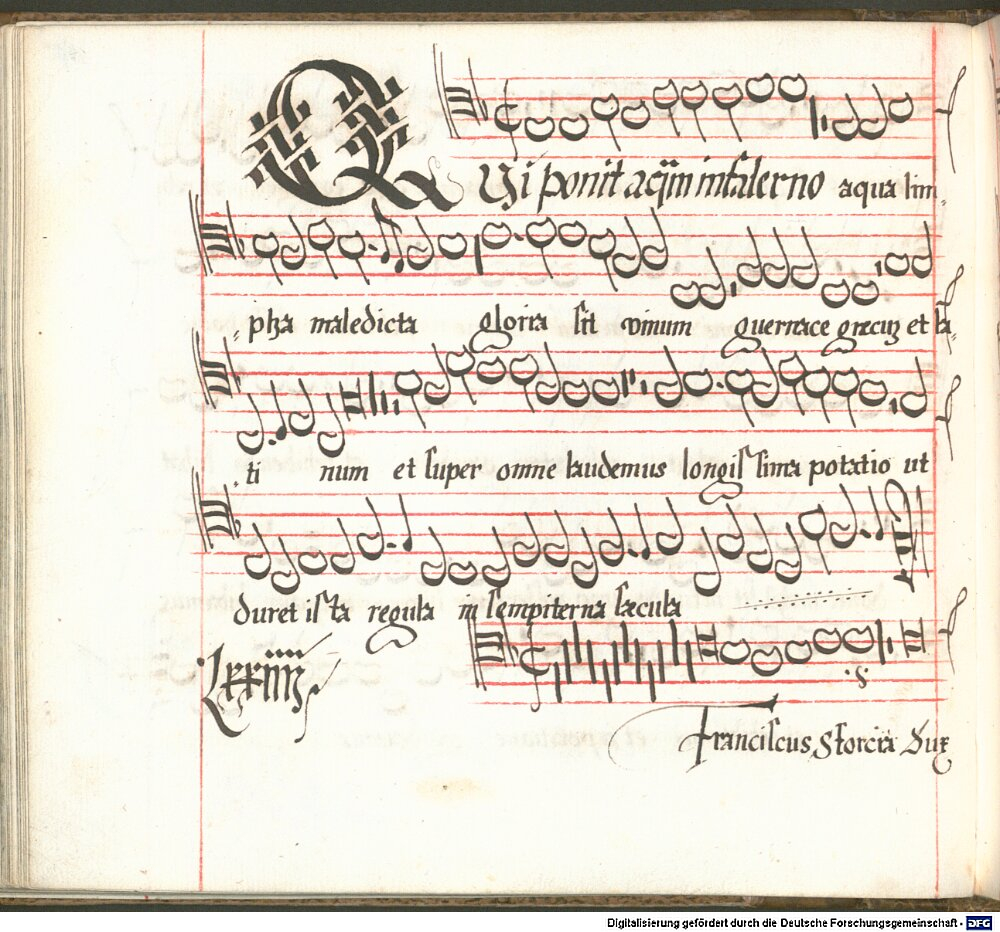 QVi ponit aq̃m in falerno aqua lim-
pha maledicta gloria sit vinum guernace grecuȝ et la-
ti num et super omne laudemus longissima potatio ut
duret ista regula in sempiterna saecula
Lxxiiii
Franciscus Sforcia Dux
Digitalisierung gefördert durch die Deutsche Forschungsgemeinschaft - DFG